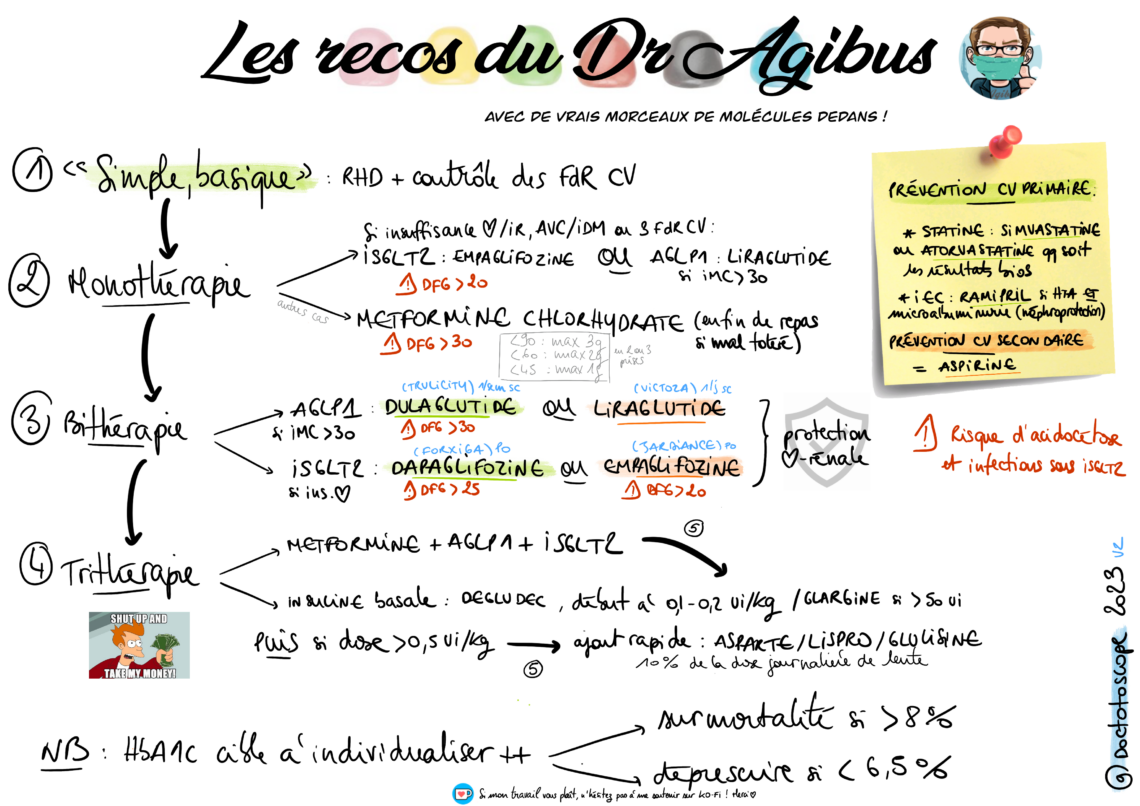 Les recos du Dr Agibus
AVEC DE VRAIS MORCEAUX DE MOLÉCULES DEDANS !
① « Simple, basique » : RHD + contrôle des FdR CV
② Monothérapie
Si insuffisance ♡/iR, AVC/iDM ou 3 FdR CV :
iSGLT2 : EMPAGLIFOZINE OU AGLP1 : LIRAGLUTIDE
si iMC > 30
⚠ DFG > 20
autres cas
METFORMINE CHLORHYDRATE (en fin de repas
si mal toléré)
⚠ DFG > 30
<90 : max 3g
<60 : max 2g
<45 : max 1g
en 2 ou 3
prises
PRÉVENTION CV PRIMAIRE :
* STATINE : SIMVASTATINE
ou ATORVASTATINE qq soit
les résultats bios
* iEC : RAMIPRIL si HTA ET
microalbuminurie (néphroprotection)
PRÉVENTION CV SECONDAIRE
= ASPIRINE
③ Bithérapie
(TRULICITY) 1/sem sc
(VICTOZA) 1/j sc
AGLP1 : DULAGLUTIDE OU LIRAGLUTIDE
si iMC > 30
⚠ DFG > 30
(FORXIGA) PO
(JARDIANCE) PO
iSGLT2 : DAPAGLIFOZINE OU EMPAGLIFOZINE
si ins. ♡
⚠ DFG > 25
⚠ DFG > 20
protection
♡-rénale
⚠ Risque d'acidocétose
et infections sous iSGLT2
④ Trithérapie
METFORMINE + AGLP1 + iSGLT2
⑤
INSULINE basale : DEGLUDEC, début à 0,1-0,2 ui/kg / GLARGINE si > 50 ui
SHUT UP AND
TAKE MY MONEY!
PUIS si dose > 0,5 ui/kg
⑤
ajout rapide : ASPARTE / LISPRO / GLULISINE
10% de la dose journalière de lente
NB : HbA1c cible à individualiser ++
surmortalité si > 8%
déprescrire si < 6,5%
Si mon travail vous plaît, n'hésitez pas à me soutenir sur KO-Fi ! Merci ♡
@Doctotoscope 2023 V2